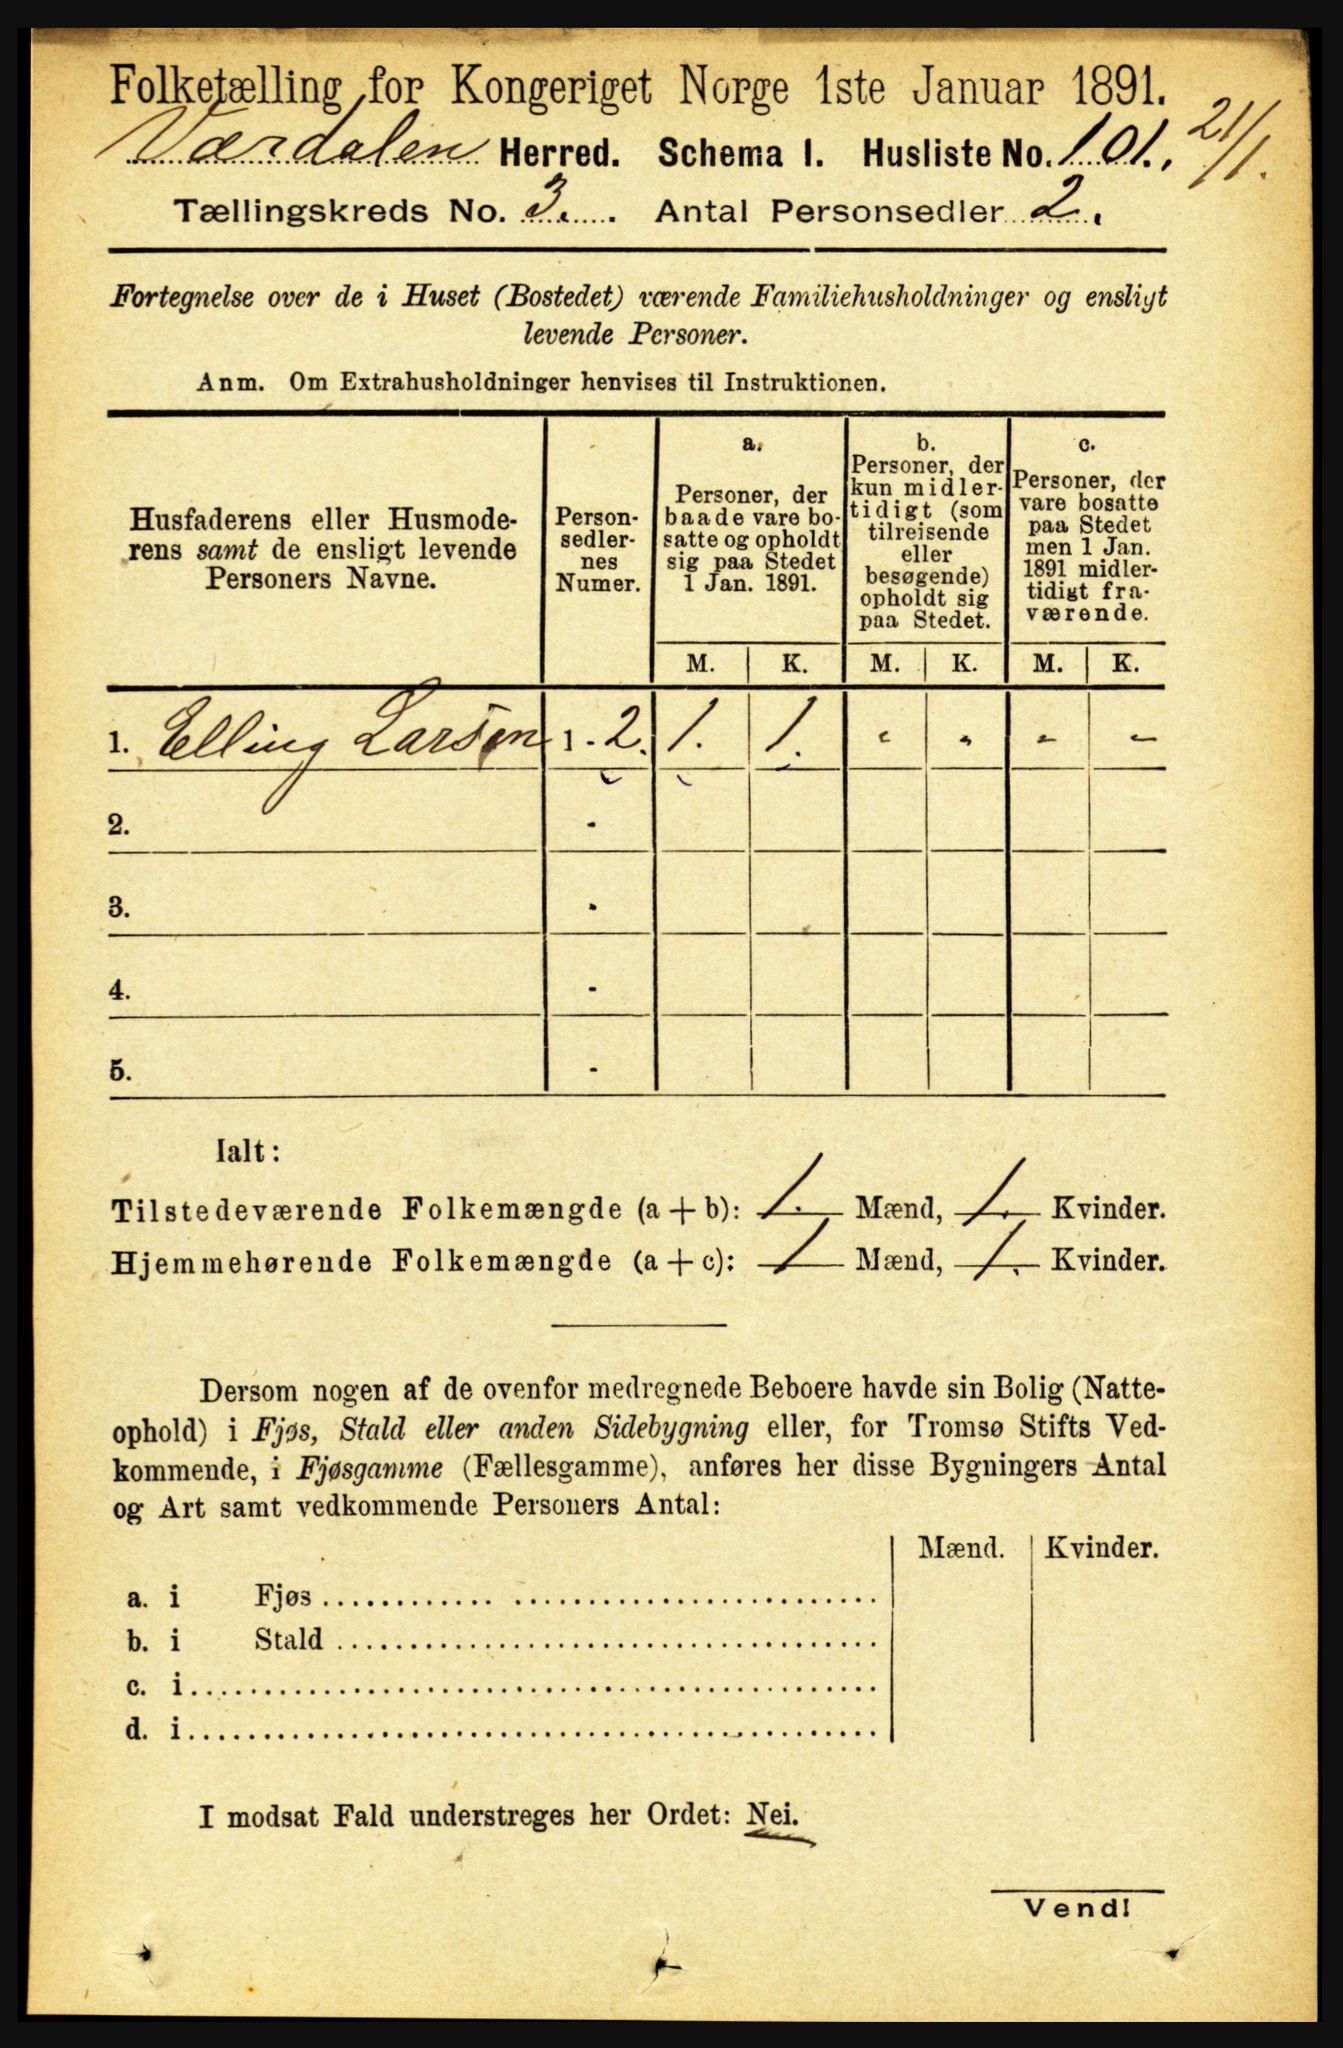 Folketælling for Kongeriget Norge 1ste Januar 1891.
Værdalen Herred. Schema I. Husliste No. 101. 21/1.
Tællingskreds No. 3. Antal Personsedler 2.
Fortegnelse over de i Huset (Bostedet) værende Familiehusholdninger og ensligt
levende Personer.
Anm. Om Extrahusholdninger henvises til Instruktionen.
Husfaderens eller Husmode-
rens samt de ensligt levende
Personers Navne.
Person-
sedler-
nes
Numer.
a.
Personer, der
baade vare bo-
satte og opholdt
sig paa Stedet
1 Jan. 1891.
b.
Personer, der
kun midler-
tidigt (som
tilreisende
eller
besøgende)
opholdt sig
paa Stedet.
c.
Personer, der
vare bosatte
paa Stedet
men 1 Jan.
1891 midler-
tidigt fra-
værende.
M. K. M. K. M. K.
1. Elling Larsen 1 - 2. 1. 1. - - - -
2. -
3. -
4. -
5. -
Ialt:
Tilstedeværende Folkemængde (a + b): 1. Mænd, 1. Kvinder.
Hjemmehørende Folkemængde (a + c): 1 Mænd, 1. Kvinder.
Dersom nogen af de ovenfor medregnede Beboere havde sin Bolig (Natte-
ophold) i Fjøs, Stald eller anden Sidebygning eller, for Tromsø Stifts Ved-
kommende, i Fjøsgamme (Fællesgamme), anføres her disse Bygningers Antal
og Art samt vedkommende Personers Antal:
Mænd. Kvinder.
a. i Fjøs
b. i Stald
c. i
d. i
I modsat Fald understreges her Ordet: Nei.
Vend!